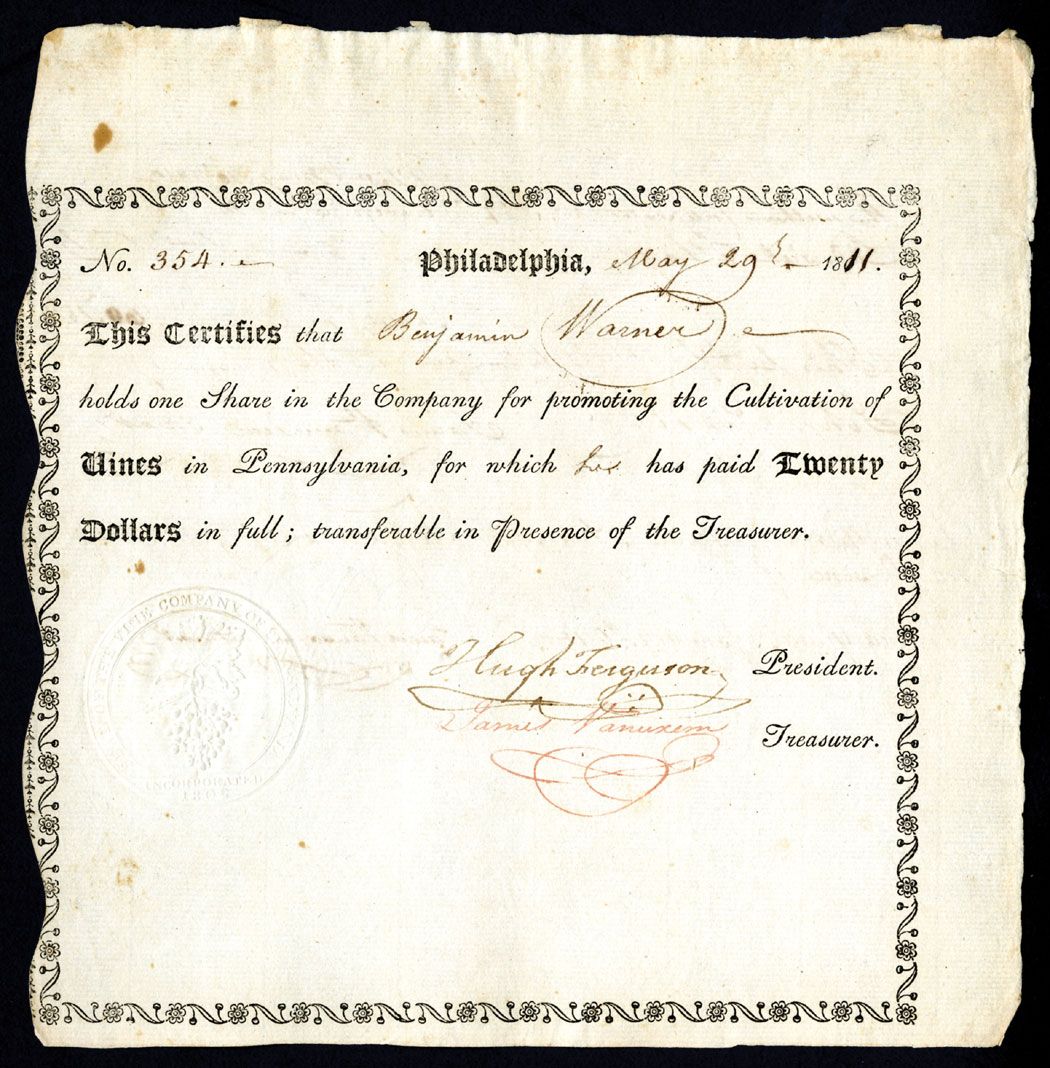 No. 354. Philadelphia, May 29th 1811.
This Certifies that Benjamin Warner
holds one Share in the Company for promoting the Cultivation of
Vines in Pennsylvania, for which he has paid Twenty
Dollars in full; transferable in Presence of the Treasurer.
Hugh Ferguson President.
James Vanuxem Treasurer.
VINE COMPANY OF
INCORPORATED